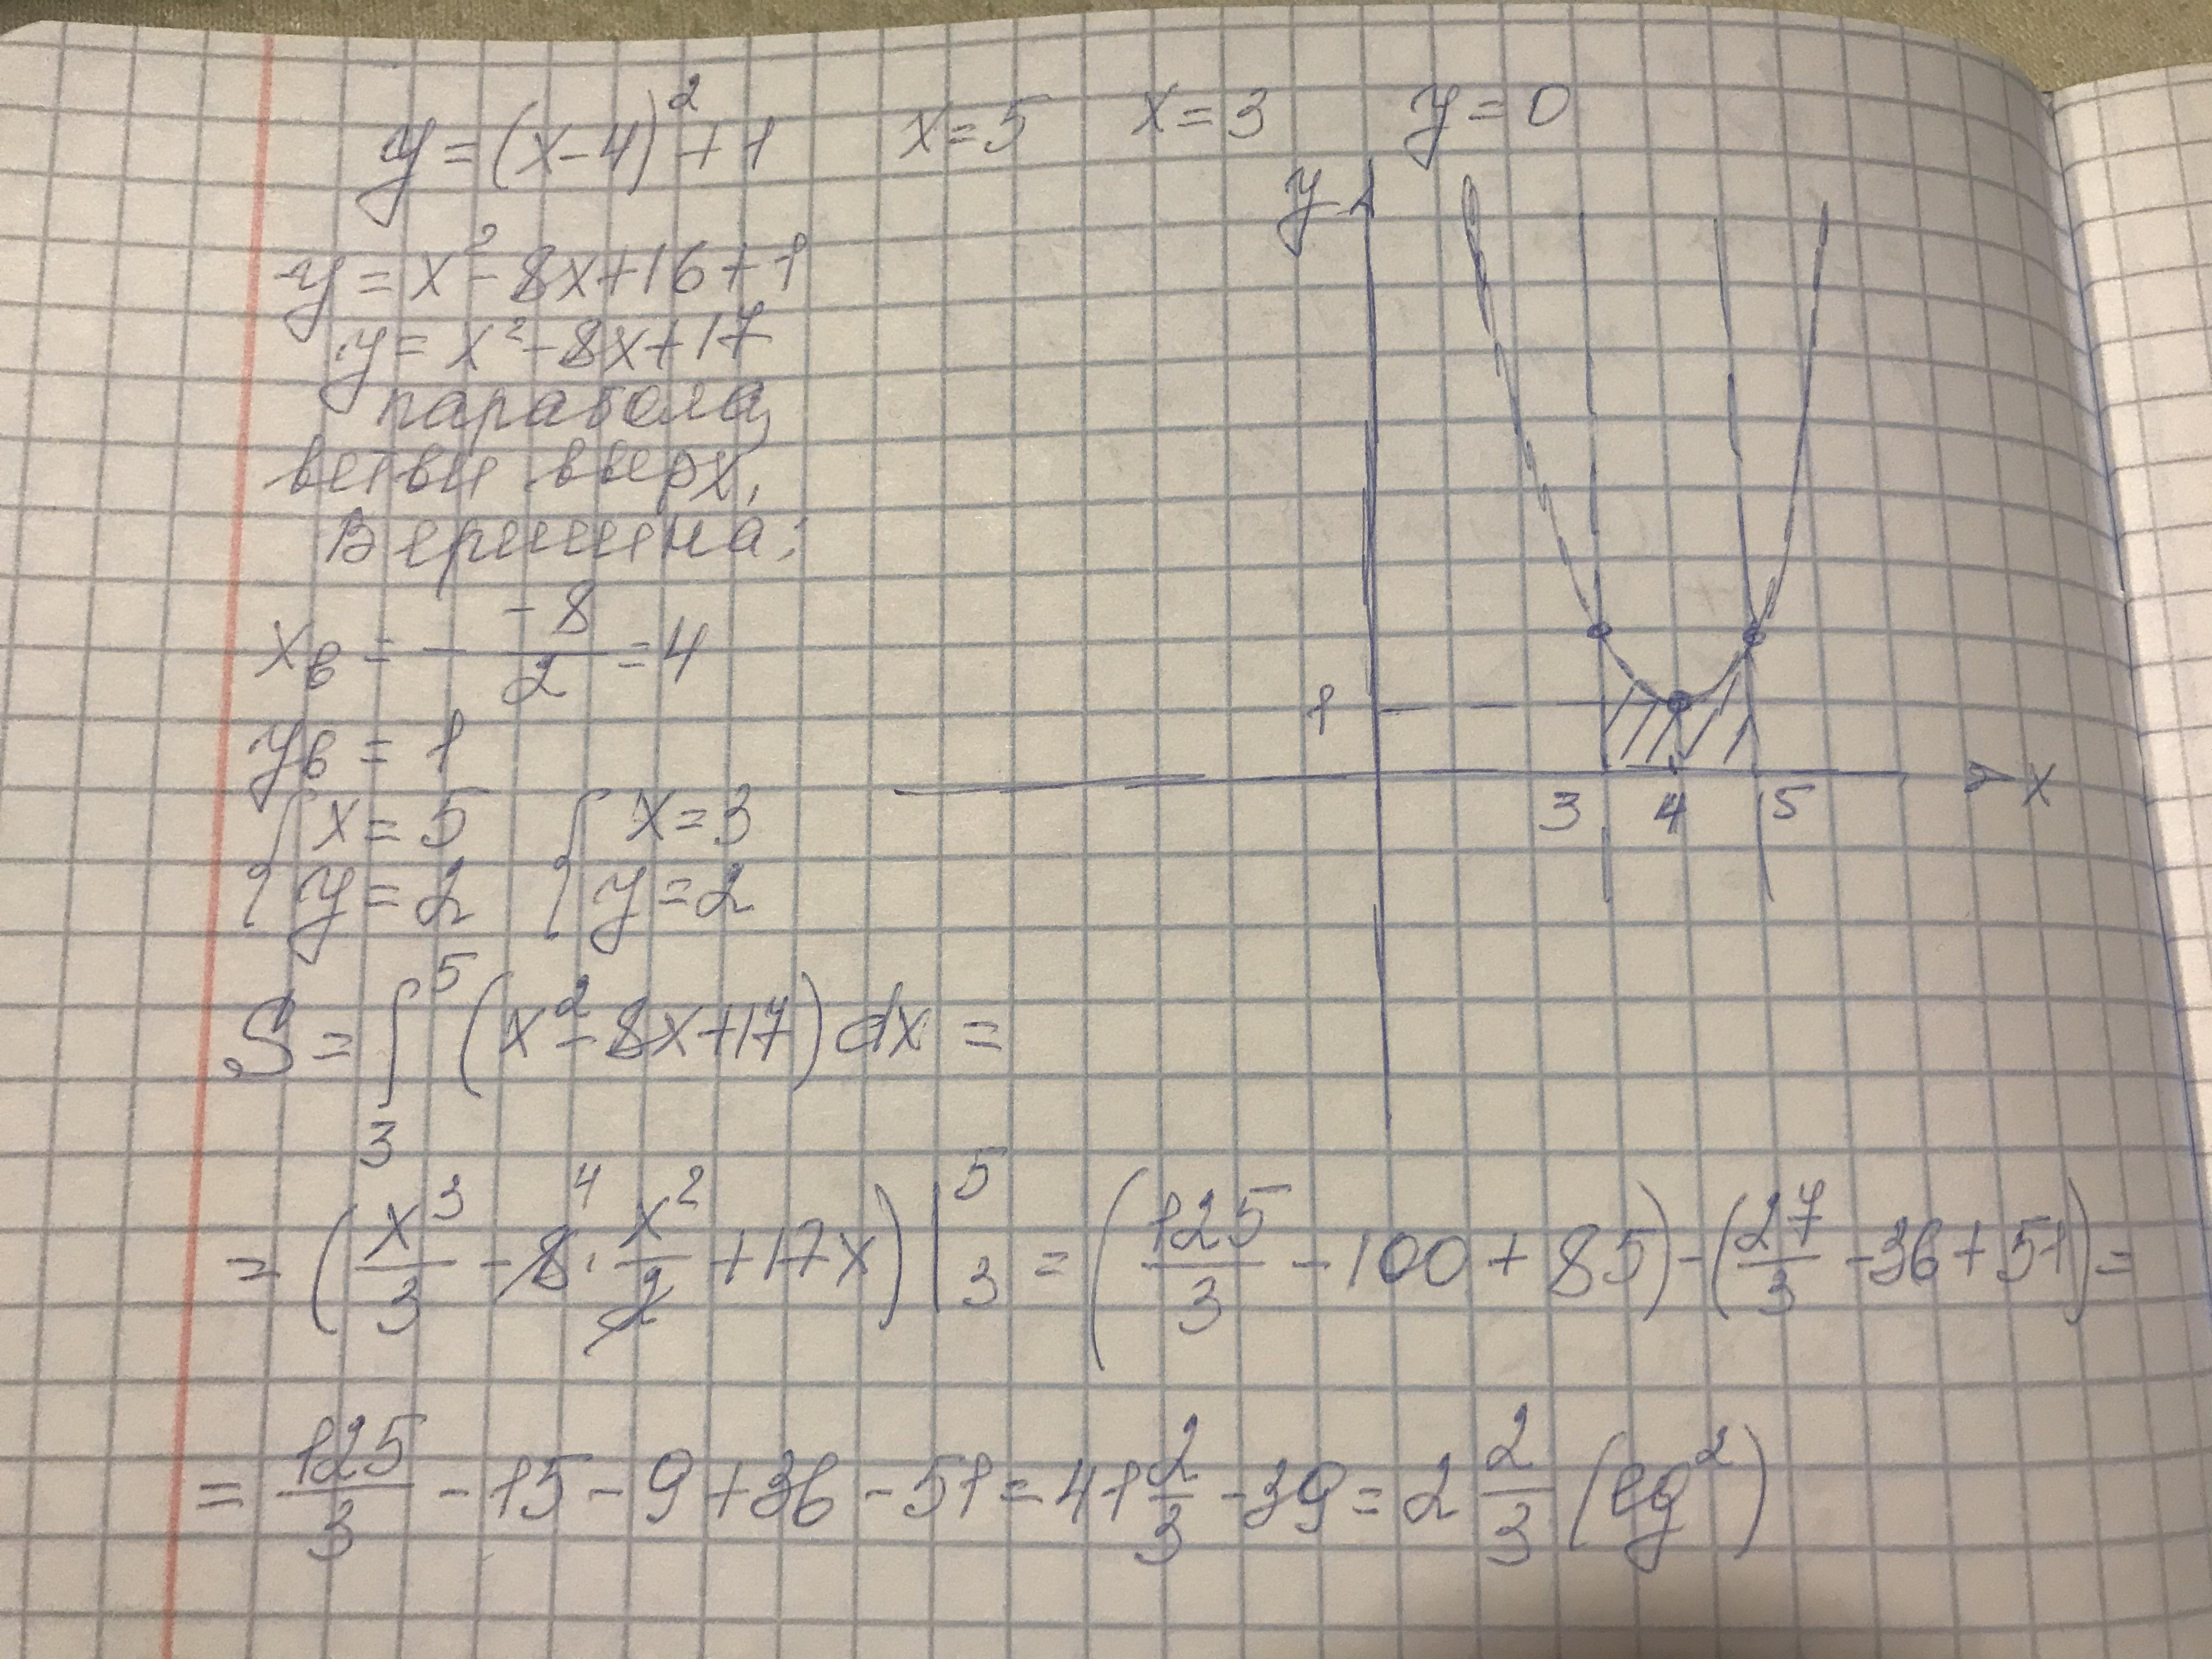 y = (x-4)² + 1   x = 5   x = 3   y = 0
y = x² - 8x + 16 + 1
y = x² - 8x + 17
парабола,
ветви вверх,
Вершина:
xв = - -8/2 = 4
yв = 1
{ x = 5   { x = 3
{ y = 2   { y = 2
y
1
3 4 5 x
S = ∫₃⁵ (x² - 8x + 17) dx =
= (x³/3 - 8⁴ · x²/2 + 17x) |₃⁵ = (125/3 - 100 + 85) - (27/3 - 36 + 51) =
= 125/3 - 15 - 9 + 36 - 51 = 41 2/3 - 39 = 2 2/3 (ед²)